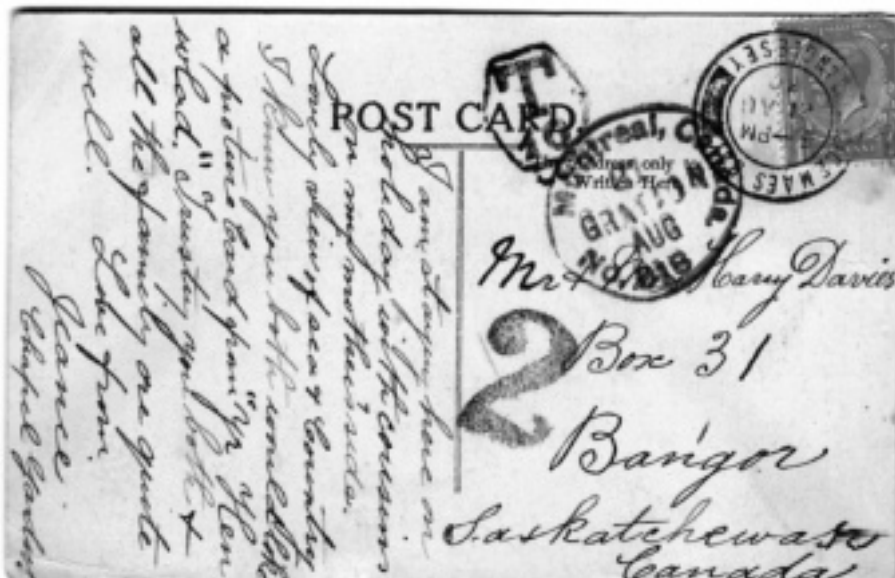 POST CARD.
Address only
Written Here
T
Montreal, Canada.
GRAYDON
AUG
1918
ANGLESEY
PM
AU
MAES
2
Mr & Harry Davies
Box 31
Bangor
Saskatchewan
Canada
I am staying here on
holiday with cousins
on my mother's side.
Lovely view of sea & country
I know you both would like
a picture card from "Yr Hen
wlad." Trusting you both &
all the family are quite
well. Love from
Jeanee
Chapel Garden.